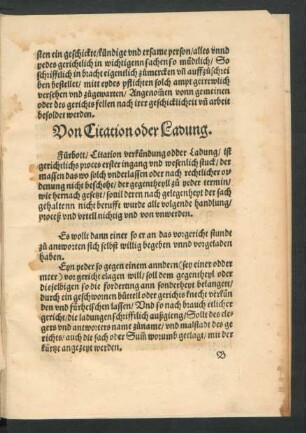 sten ein geschickte/kündige vnd ersame person/alles vnnd
yedes gerichtlich in wichtigenn sachen so mündtlich/ So
schrifftlich in bracht eigentlich zůmercken vñ auffzůschri
ben bestellet/ mitt eydes pflichten solch ampt getrewlich
versehen vnd zůgewarten/ Angenomen vonn gemeinen
oder des gerichts fellen nach irer geschicklicheit vñ arbeit
besoldet werden.
Von Citation oder Ladung.
Fürbott/ Citation verkündung odder Ladung/ ist
gerichtlichs proces erster ingang vnd wesenlich stuck/ der
massen das wo solch vnderlassen oder nach rechtlicher or
denung nicht beschehe/ der gegenteyl zu yeder termin/
wie hernach gesetzt/ souil deren nach gelegenheyt der sach
gehaltenn nicht berufft wurde alle volgende handlung/
proceß vnd vrteil nichtig vnd von vnwerden.
Es wolt dann einer so er an das vorgericht stunde
zů antworten sich selbst willig begeben vnnd vorgeladen
haben.
Eyn yeder so gegen einem anndern (sey einer odder
mer) vor gericht clagen will/ soll dem gegenheyl oder
die selbigen so die forderung ann sonderheyt belanget/
durch ein geschwornen büttel oder gerichts knecht verkün
den vnd fürheischen lassen/ Vnd so nach brauch etlicher
gericht/ die ladungen schrifftlich außgieng/ Sollt des cle
gers vnd antworters name zůname/ vnd malstadt des ge
richts/ auch die sach oder Sum̃ worumb geclagt/ mit der
kürtze angezeygt werden.
B